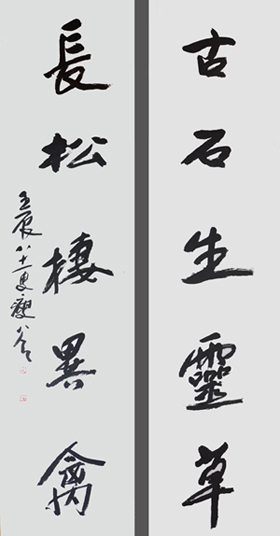 古石生靈草
長松棲異禽
壬辰八十一叟